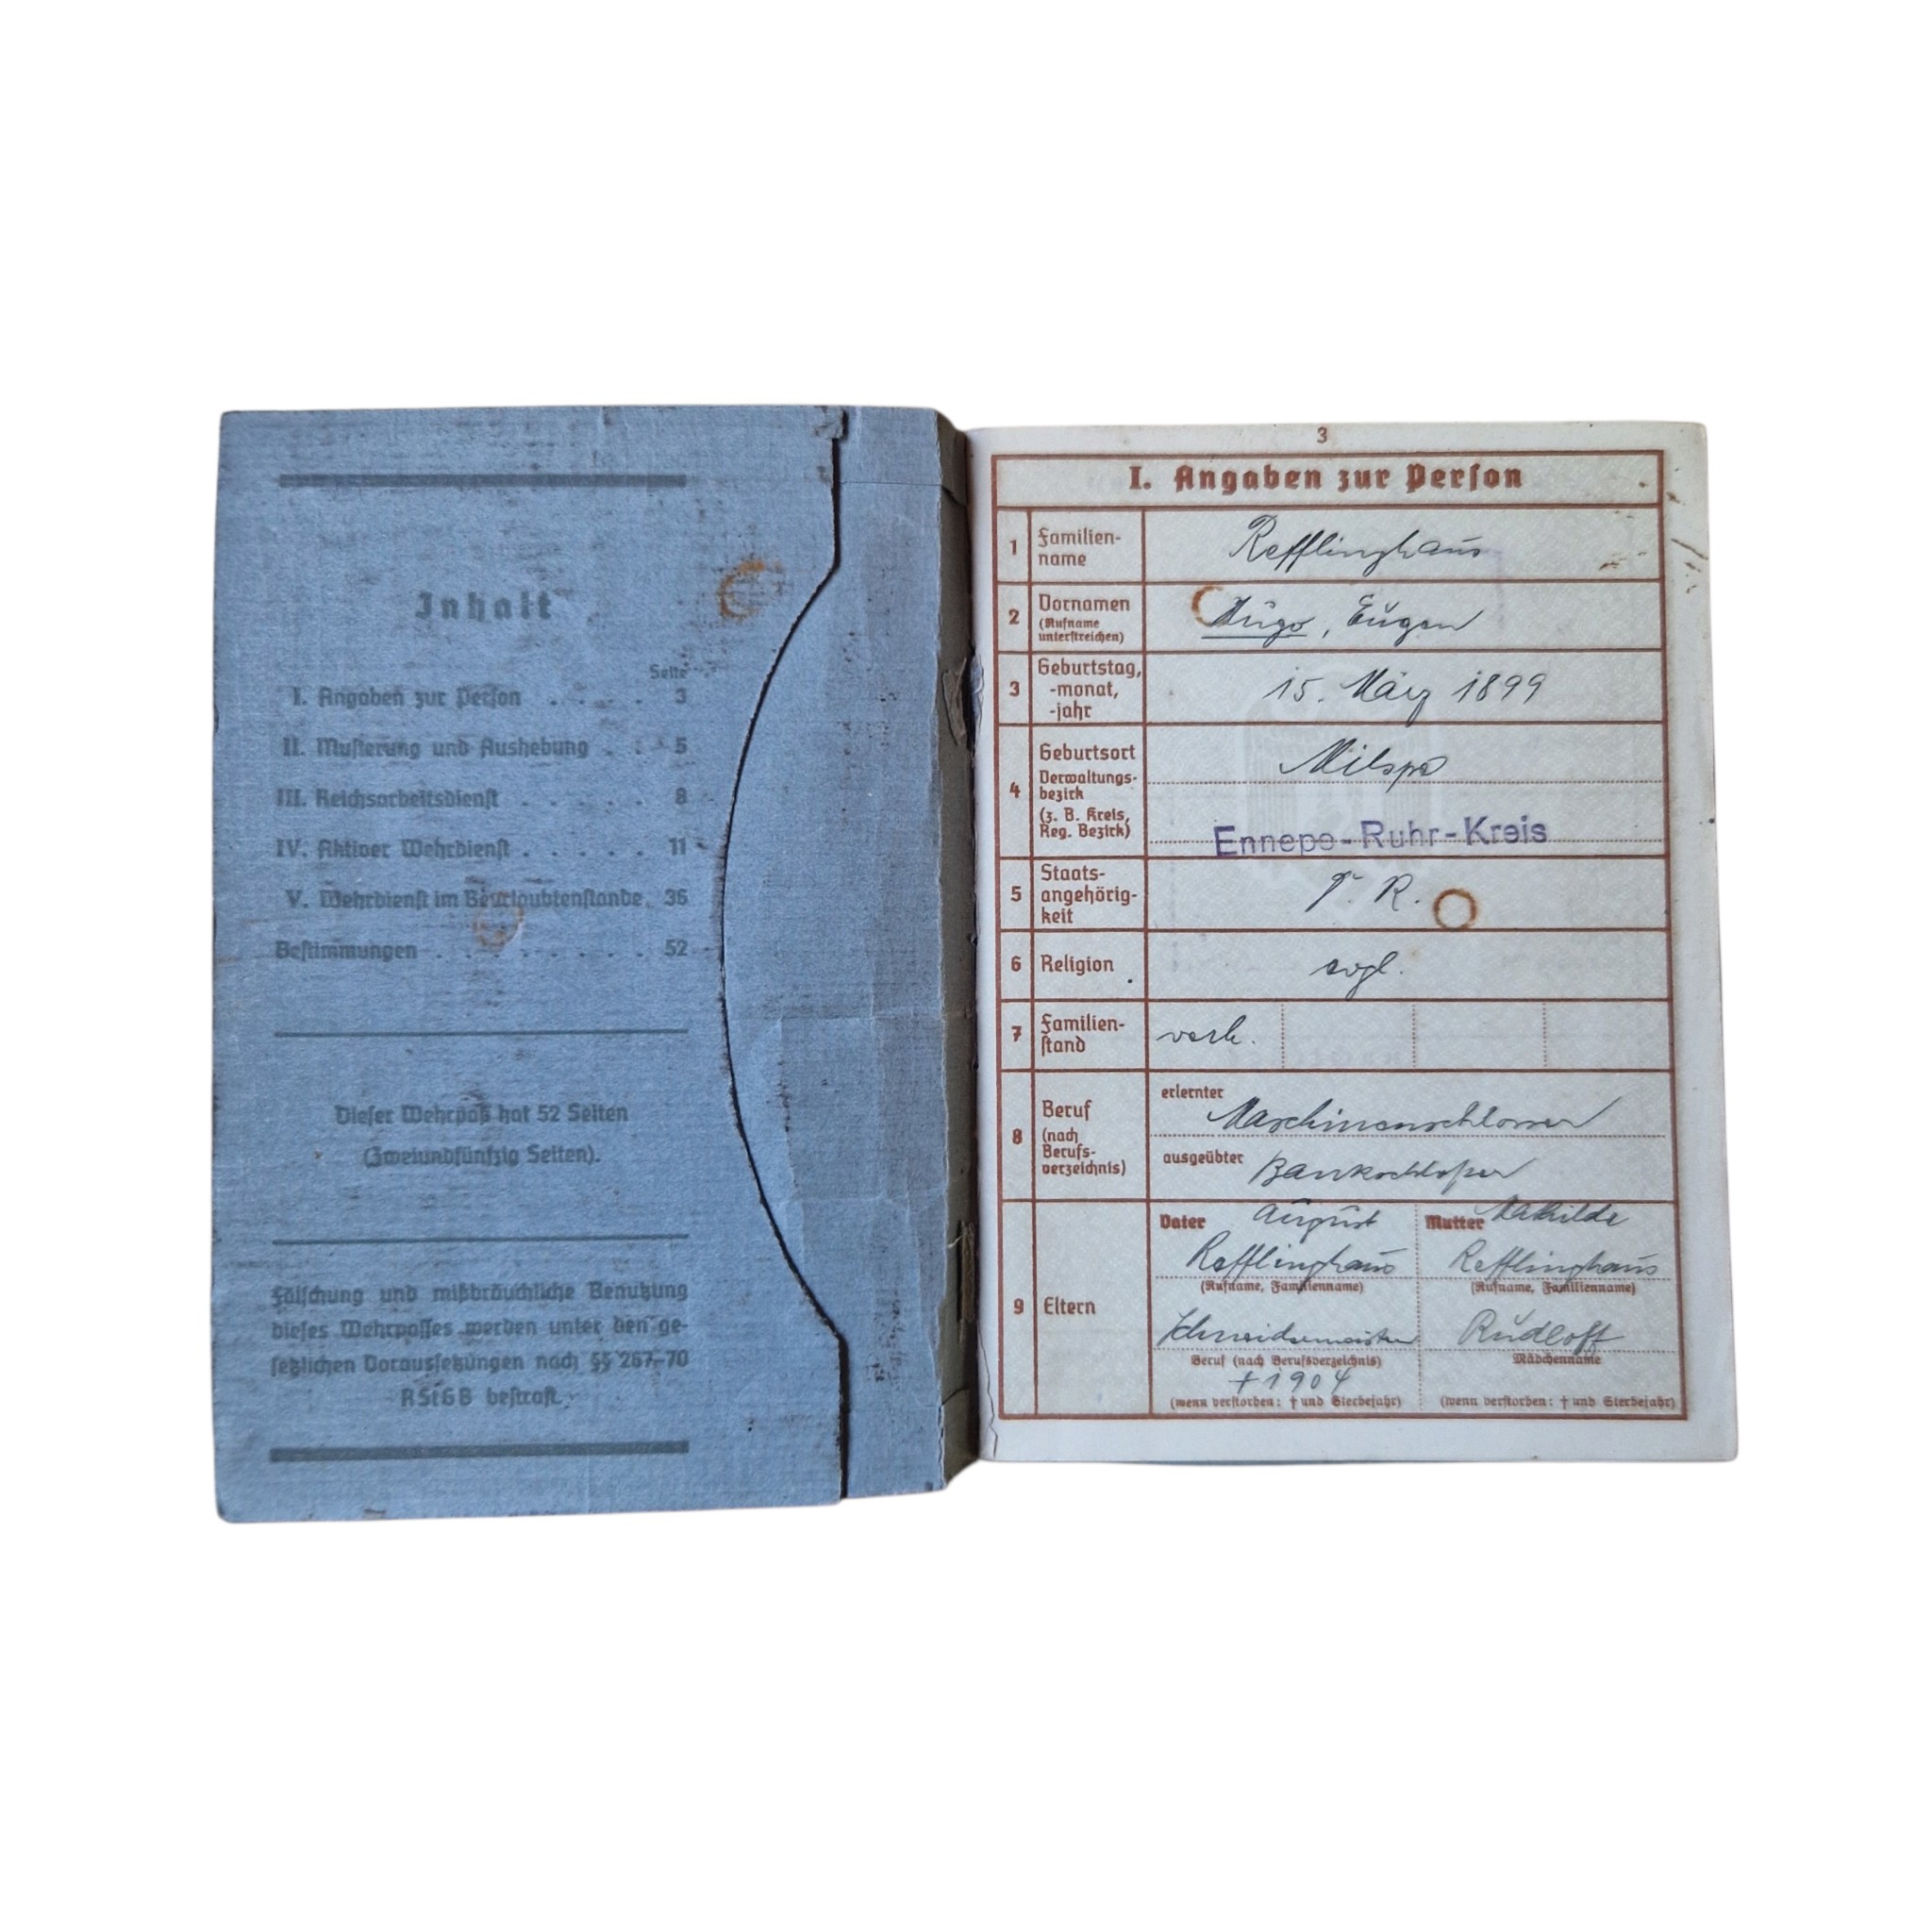 Inhalt
Seite
I. Angaben zur Person . . . . 3
II. Musterung und Aushebung . . . 5
III. Reichsarbeitsdienst . . . . . 8
IV. Aktiver Wehrdienst . . . . . . 11
V. Wehrdienst im Beurlaubtenstande. 36
Bestimmungen . . . . . . . . . 52
Dieser Wehrpaß hat 52 Seiten
(Zweiundfünfzig Seiten).
Fälschung und mißbräuchliche Benutzung
dieses Wehrpasses werden unter den ge-
setzlichen Voraussetzungen nach §§ 267-70
RStGB bestraft.
3
I. Angaben zur Person
1 Familien-
name
Refflinghaus
2 Vornamen
(Rufname
unterstreichen)
Hugo, Eugen
3 Geburtstag,
-monat,
-jahr
15. März 1899
4 Geburtsort
Verwaltungs-
bezirk
(z. B. Kreis,
Reg. Bezirk)
Milspe
Ennepe-Ruhr-Kreis
5 Staats-
angehörig-
keit
R.
6 Religion
evgl.
7 Familien-
stand
verh.
8 Beruf
(nach
Berufs-
verzeichnis)
erlernter
Maschinenschlosser
ausgeübter Bankschlosser
9 Eltern
Vater August
Refflinghaus
(Rufname, Familienname)
Schneidermeister
Beruf (nach Berufsverzeichnis)
† 1904
(wenn verstorben: † und Sterbejahr)
Mutter Mathilde
Refflinghaus
(Rufname, Familienname)
Rudloff
Mädchenname
(wenn verstorben: † und Sterbejahr)